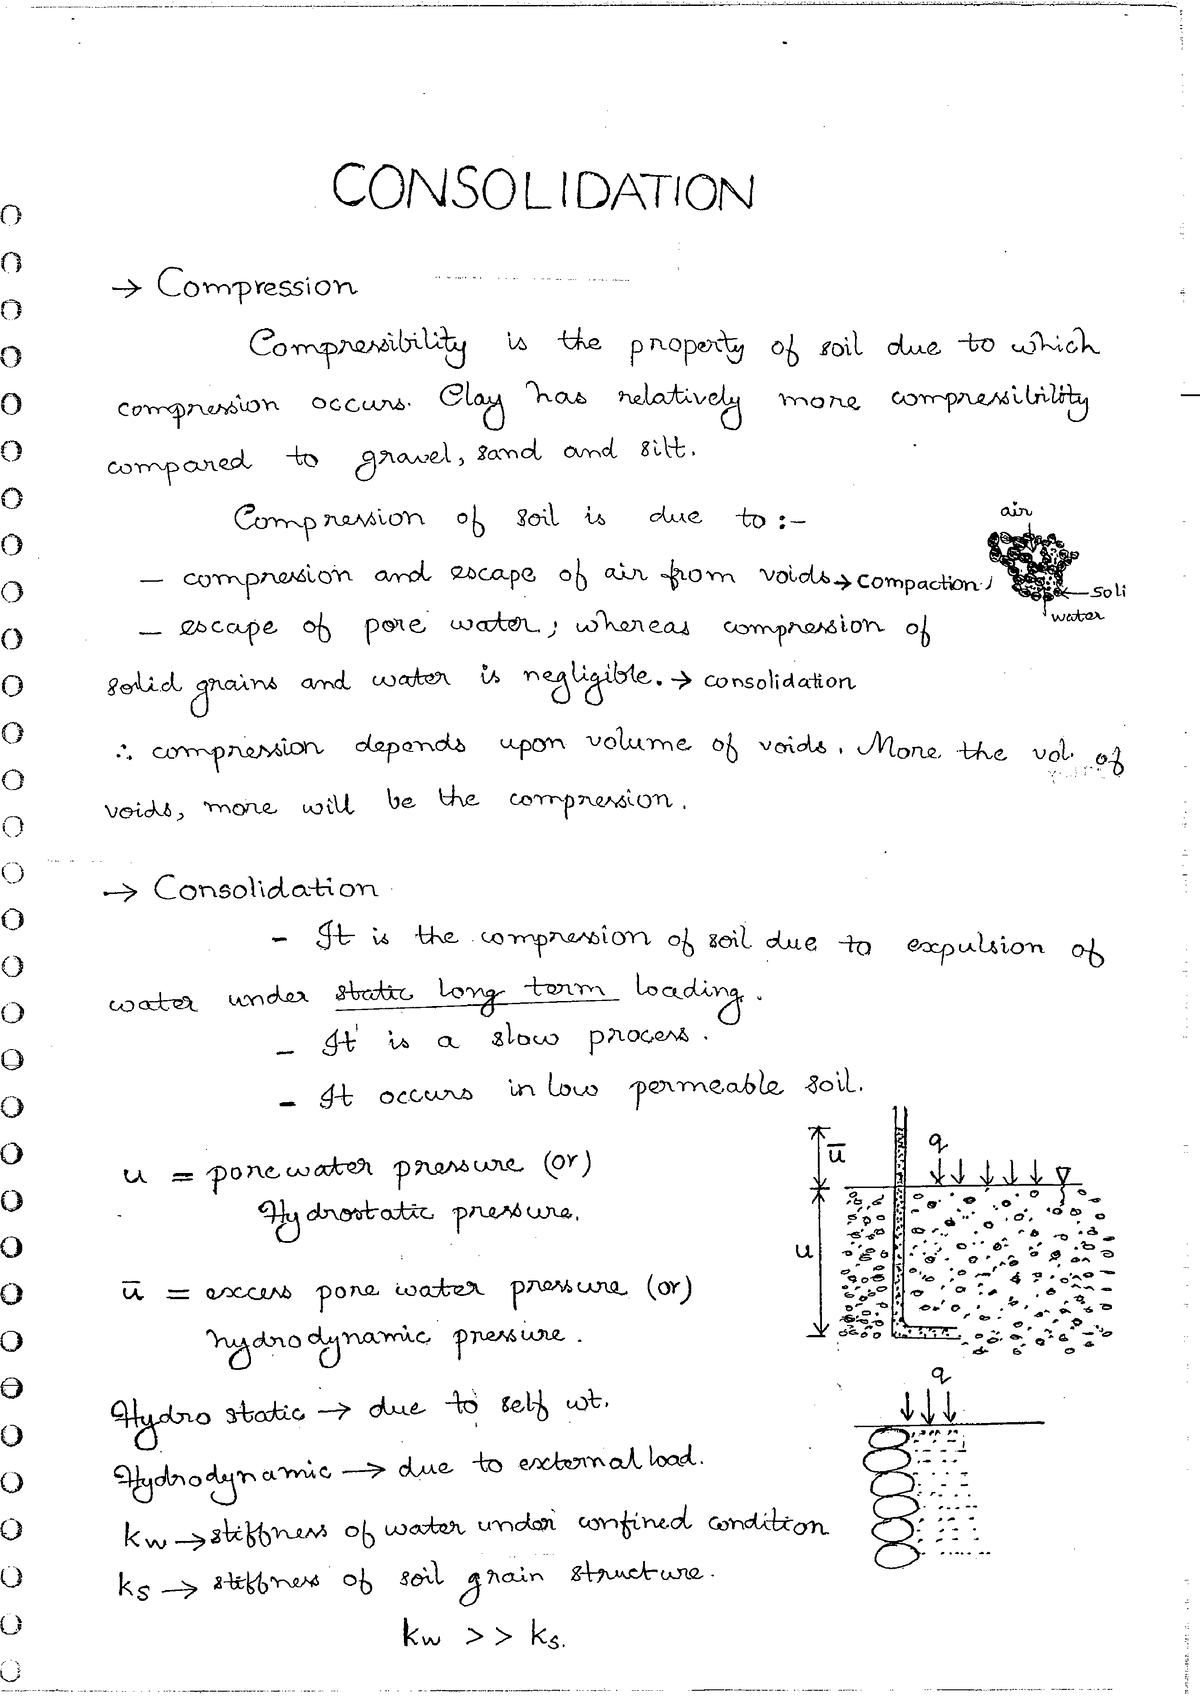 CONSOLIDATION
→ Compression
Compressibility is the property of soil due to which
compression occurs. Clay has relatively more compressibility
compared to gravel, sand and silt.
Compression of soil is due to :-
air
— compression and escape of air from voids → compaction
soli
— escape of pore water; whereas compression of
water
solid grains and water is negligible. → consolidation
∴ compression depends upon volume of voids. More the vol. of
voids, more will be the compression.
→ Consolidation
- It is the compression of soil due to expulsion of
water under static long term loading.
- It is a slow process.
- It occurs in low permeable soil.
u = pore water pressure (or)
Hydrostatic pressure.
ū
q
u
ū = excess pore water pressure (or)
hydrodynamic pressure.
q
Hydro static → due to self wt.
Hydrodynamic → due to external load.
kw → stiffness of water under confined condition
ks → stiffness of soil grain structure.
kw >> ks.